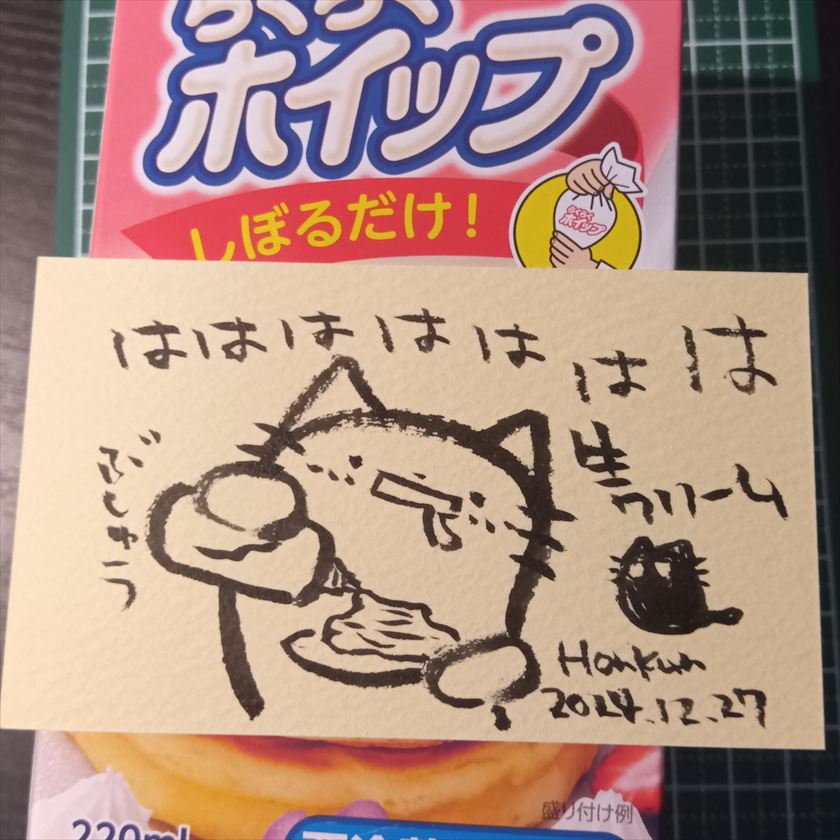 らくらく
ホイップ
しぼるだけ!
らくらく
ホイップ
はははははは は
生クリーム
ぶしゅう
Honkun
2024.12.27
盛り付け例
220ml